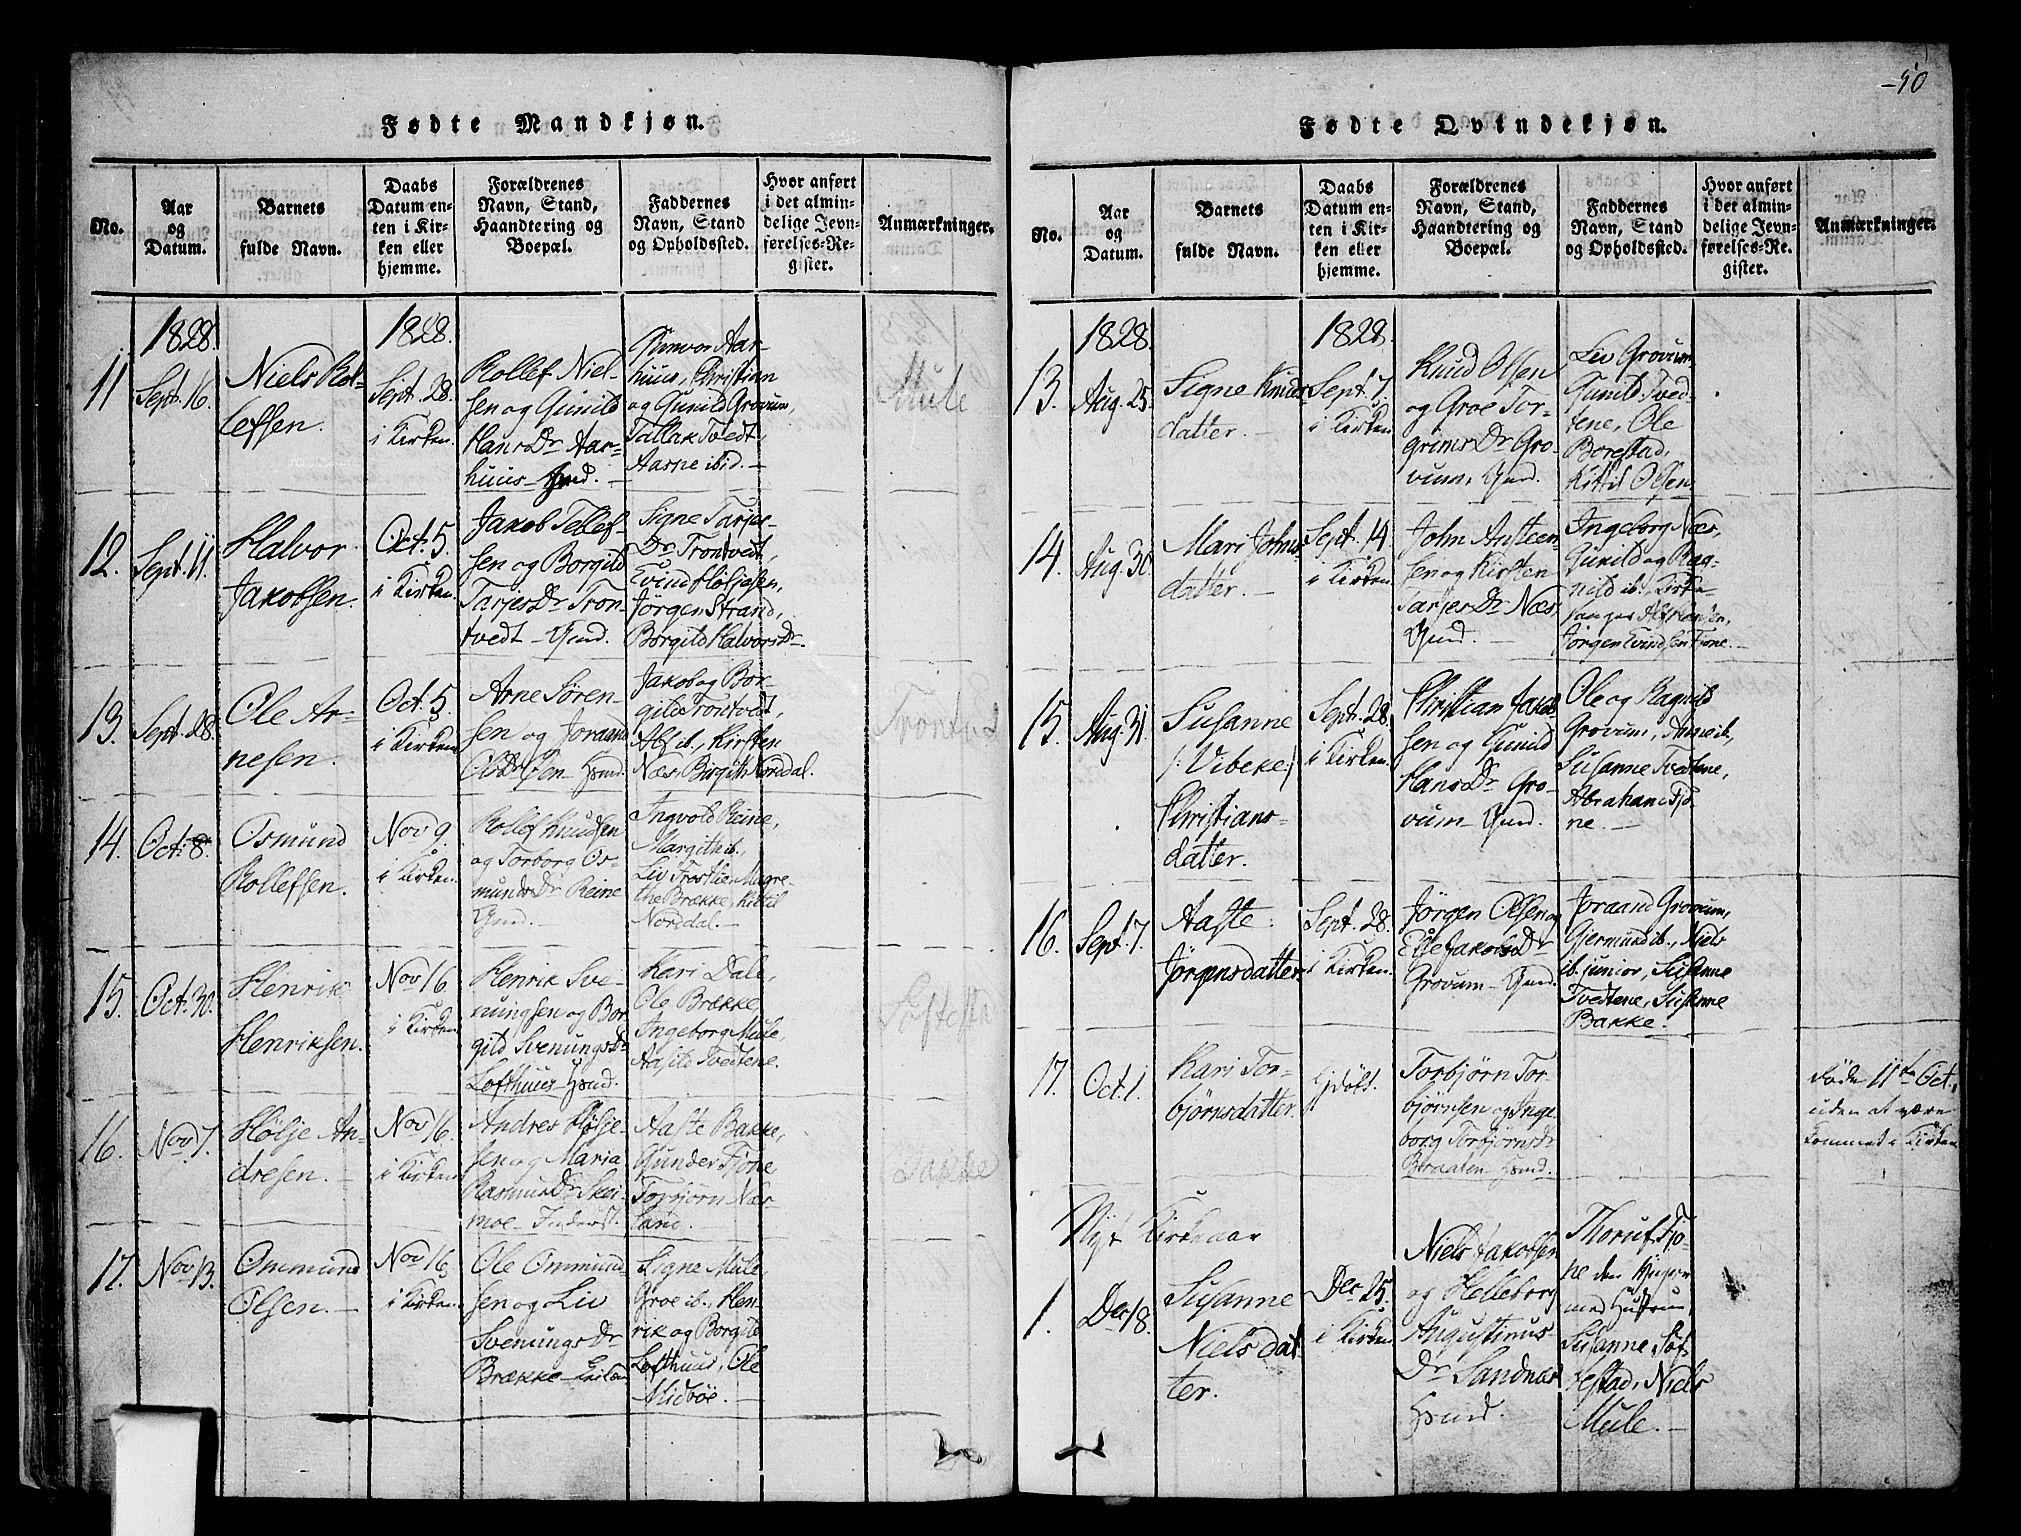 Fødte Mandkjøn.
No.
Aar
og
Datum.
Barnets
fulde Navn.
Daabs
Datum en-
ten i Kir-
ken eller
hjemme.
Forældrenes
Navn, Stand,
Haandtering og
Boepæl.
Faddernes
Navn, Stand
og Opholdssted.
Hvor anført
i det almin-
delige Jevn-
førelses-Re-
gister.
Anmærkninger.
1828.
1828.
11
Sept. 16.
Niels Rol-
lefsen.
Sept. 28.
i Kirken.
Rollef Niel-
sen og Gunild
HansDr Aar-
huus
Gunvor Aar-
huus, Christian
og Gunild Grovum,
Tallak Tvedt,
Aasne ibid. –
Mule
12.
Sept. 11.
Halvor
Jakobsen.
Oct. 5.
i Kirken.
Jakob Tellef-
sen og Borgild
TarjesDr Tron-
tvedt
Signe Tarjes-
Dr Trontvedt,
Evind Høljesen,
Jörgen Strand,
Borgild HalvorsDr.
13.
Sept. 28.
Ole Ar-
nesen.
Oct. 5.
i Kirken
Arne Søren-
sen og Joraand
Jakob og Bor-
gild Trontvedt,
ib., Kirsten
Næs, Birgith Norddal.
Trontved
14.
Oct. 8.
Osmund
Rollefsen.
Nov 9.
i Kirken.
Rollef Knudsen
og Torborg Os-
mundsDr Reine
Ingvold Reine,
Margith ib.,
Liv Trostien Magre-
the Brække, Kittil
Norddal. –
15.
Oct. 30.
Henrik
Henriksen.
Nov 16.
i Kirken
Henrik Sve-
nungsen og Bor
gild SvenungsDr
Lofthuus
Kari Dale,
Ole Brække,
Ingeborg Mule,
Aasild Tvedtene.
16.
Nov 7.
Hölje An-
dresen. –
Nov 16.
i Kirken
Andres Hölje-
sen og Maria
RasmusDr Skei-
moe – Inderst.
Aaste Bakke,
Gunder Fjone,
Torbjörn Næs-
land. –
Bakke
17.
Nov 13.
Ommund
Olsen. –
Nov 16.
i Kirken
Ole Ommund-
sen og Liv
SvenungsDr
Brække
Signe Mule,
Groe ib., Hen-
rik og Borgild
Lofthuus, Ole
Midböe. –
50
Fødte Qvindekjøn.
No.
Aar
og
Datum.
Barnets
fulde Navn.
Daabs
Datum en-
ten i Kir-
ken eller
hjemme.
Forældrenes
Navn, Stand,
Haandtering og
Boepæl.
Faddernes
Navn, Stand
og Opholdssted.
Hvor anført
i det almin-
delige Jevn-
førelses-Re-
gister.
Anmærkninger.
1828.
1828.
13.
Aug. 25.
Signe Knuds
datter. –
Sept. 7.
i Kirken
Knud Olsen
og Groe Tor-
grimsDr Gro-
vum,
Liv Grovum
Gunild Tved-
tene, Ole
Borestad,
Kittil Olsen
14.
Aug. 30
Mari Johns-
datter. –
Sept. 14.
i Kirken
John Austeen-
sen og Kirsten
TarjesDr Næs,
Ingeborg Næs,
Gunild og Rag-
nild ib., Kirke-
sanger
Jörgen Evindsen Fjone. –
15.
Aug. 31.
Susanne
/: Vibeke:/
Christians-
datter.
Sept. 28.
i Kirken.
Christian Jakob-
sen og Gunild
HansDr Gro-
vum
Ole og Ragnild
Grovum, Anne ib.,
Susanne Tvedtene,
Abraham Fjo-
ne. –
16.
Sept. 7.
Aaste
Jörgensdatter.
Sept. 28.
i Kirken.
Jörgen Olsen og
JakobsDr
Grovum
Joraand Grovum,
Gjermund ib., Niels
ib. junior, Susanne
Tvedtene, Susanne
Bakke.
17.
Oct. 1.
Kari Tor-
björnsdatter.
Hjdöbt.
Torbjörn Tor-
björnsen og Inge
borg TorbjörnsDr
Braaten
Döde 11te Oct.,
uden at være
kommet i Kirken.
Nyt Kirkeaar
1.
Dec 18.
Susanne
Niels dat
ter.
Dec 25.
i Kirken
Niels Jakobsen
og Helleborg
Augustinus-
Dr. Sandnæs
Thoruf Fjo-
ne den yngere
med Hustru,
Susanne Söf-
testad, Niels
Mule. –